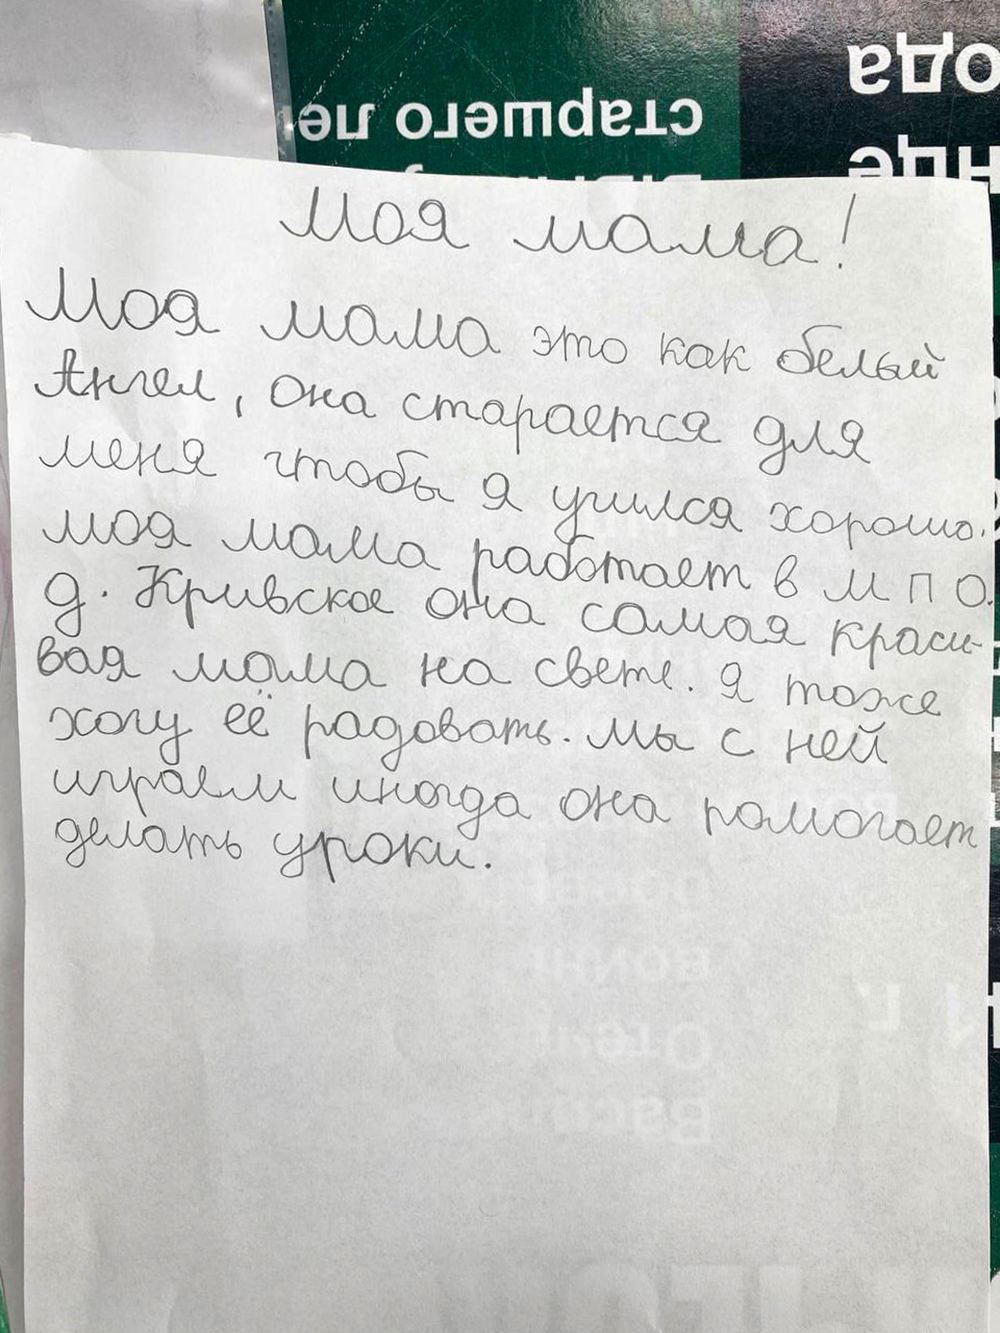 ода
старшего ле
нце
Моя мама!
Моя мама это как белый
Ангел, она старается для
меня чтобы я учился хорошо.
моя мама работает в МПО.
д. Кривское она самая краси-
вая мама на свете. Я тоже
хочу её радовать. Мы с ней
играем иногда она помогает
делать уроки.